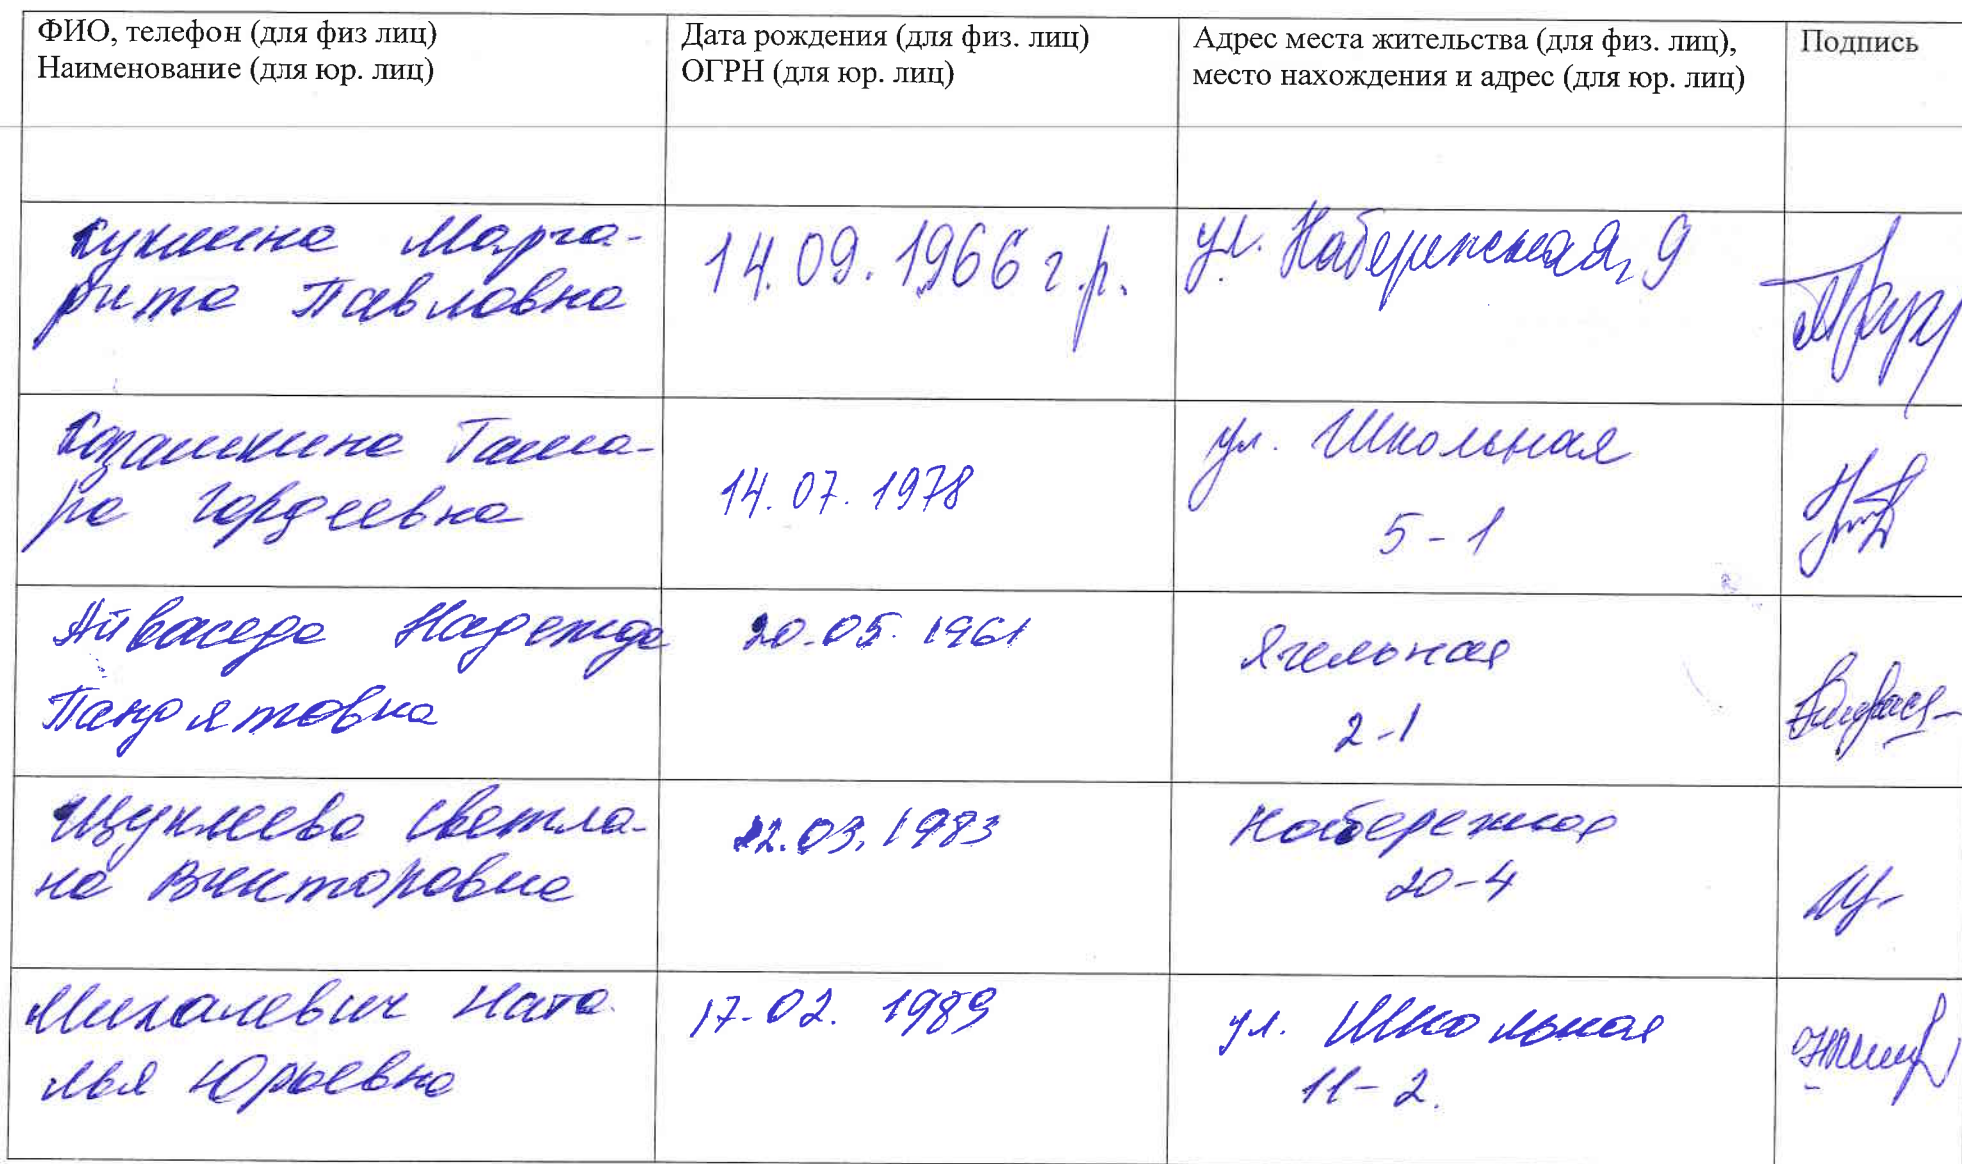 ФИО, телефон (для физ лиц)
Наименование (для юр. лиц)
Дата рождения (для физ. лиц)
ОГРН (для юр. лиц)
Адрес места жительства (для физ. лиц),
место нахождения и адрес (для юр. лиц)
Подпись
Марга-
рита Павловна
14.09.1966 г.р.
ул. Набережная, 9
Казамкина Тама-
ра Гордеевна
14.07.1978
ул. Школьная
5-1
Айваседа Надежда
Пандятовна
20.05.1961
Ягельная
2-1
Щуклеева Светла-
на Викторовна
22.03.1983
Набережная
20-4
Михалевич Ната
лья Юрьевна
17.02.1989
ул. Школьная
11-2.